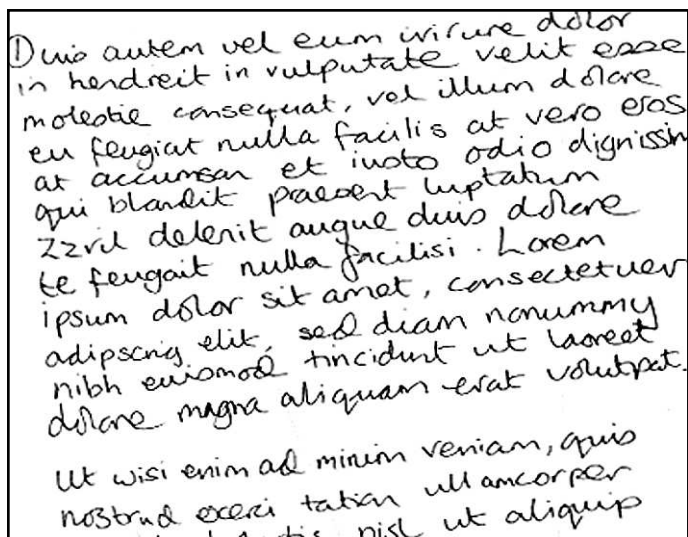 Duis autem vel eum irirure dolor
in hendreit in vulputate velit esse
molestie consequat, vel illum dolore
eu feugiat nulla facilis at vero eros
at accumsan et iusto odio dignissin
qui blandit praesent luptatum
zzril delenit augue duis dolore
te feugait nulla facilisi. Lorem
ipsum dolor sit amet, consectetuer
adipscing elit, sed diam nonummy
nibh euismod tincidunt ut laoreet
dolore magna aliquam erat volutpat.
Ut wisi enim ad minim veniam, quis
nostrud exerci tation ullamcorper
nisl ut aliquip